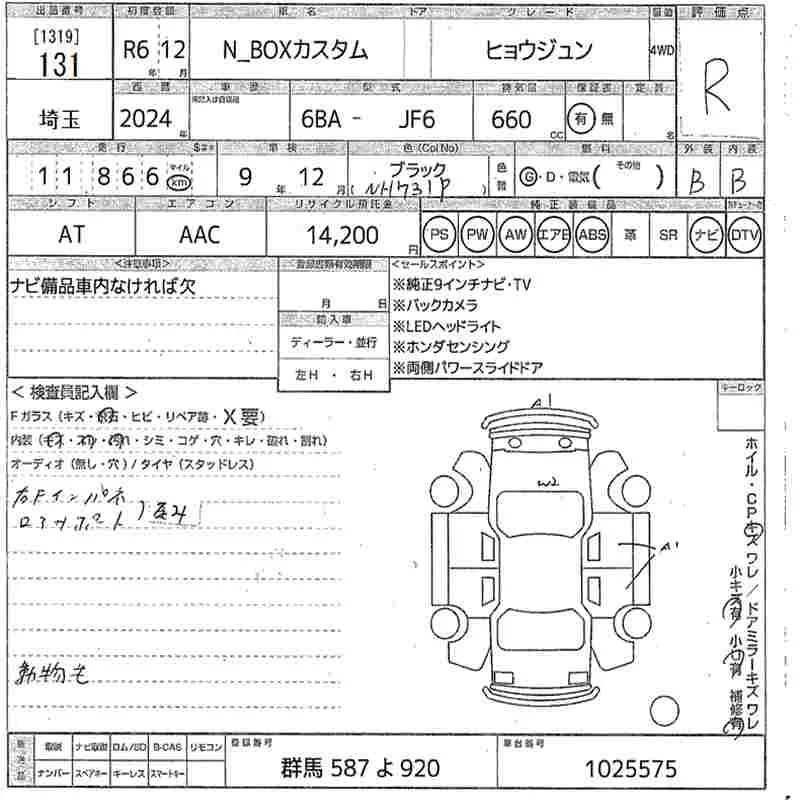 出品番号 初度登録 車名 ドア グレード 駆動 評価点
[1319]
131 R6 12 N_BOXカスタム ヒョウジュン 4WD R
年 月
西暦 車歴 型式 排気量 保証書 定員
埼玉 2024 年 6BA - JF6 660 CC 有 無 名
走行 車検 色(Col No) 燃料 外装 内装
11866 マイル km 9 年 12 月 ブラック (NH731P) 色替 G・D・電気( その他 ) B B
シフト エアコン リサイクル預託金 純正装備品
AT AAC 14,200 円 PS PW AW エアB ABS 革 SR ナビ DTV
<注意事項> <セールスポイント>
ナビ備品車内なければ欠 月 日 ※純正9インチナビ・TV
※バックカメラ
輸入車 ※LEDヘッドライト
ディーラー・並行 ※ホンダセンシング
左H ・ 右H ※両側パワースライドドア
< 検査員記入欄 > キーロック
Fガラス (キズ・飛石・ヒビ・リペア跡・X要)
内装 (キズ・スリ・汚れ・シミ・コゲ・穴・キレ・破れ・割れ)
オーディオ (無し・穴) / タイヤ (スタッドレス)
右Fインパネ
ロアサポート
A1
W2
A1
動物毛
ホイル・CPキズワレ/ドアミラーキズワレ
小キズ有 小凹有 補修有
取説 ナビ取説 ロム/SD B-CAS リモコン 登録番号 車台番号
ナンバー スペアキー キーレス スマートキー 群馬 587 よ 920 1025575